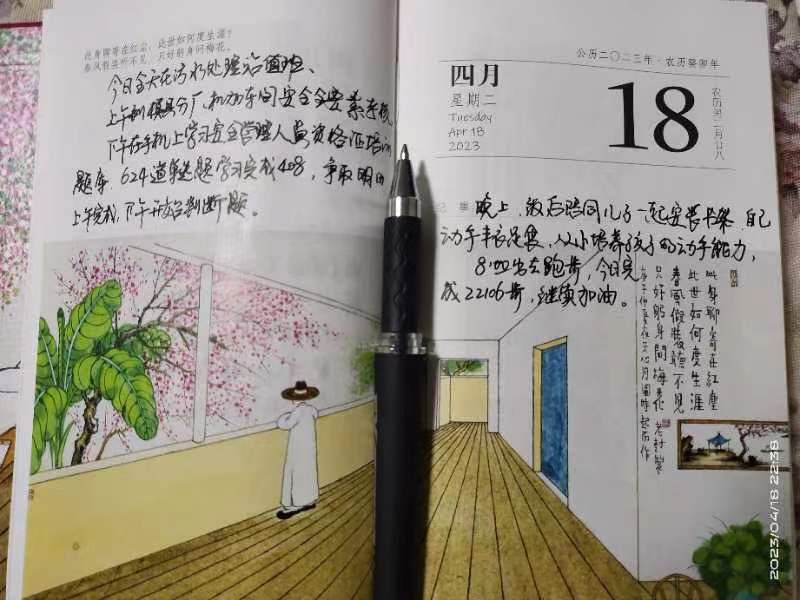 此身聊寄在红尘，此世如何度生涯？
春风假装听不见，只好躬身问梅花。
今日全天在污水处理站值班、
上午到模具分厂机加车间安全令安系考核。
下午在手机上学习安全管理人员资格证培训
题库，624道单选题学习完成408，争取明日
上午完成，下午开始判断题。
公历二〇二三年·农历癸卯年
四月
星期二
Tuesday
Apr 18
2023
18
农历闰二月廿八
纪事
晚上，饭后陪同儿子一起安装书架，自己
动手丰衣足食，从小培养孩子的动手能力，
8:00出去跑步，今日完
成22106步，继续加油。
此身聊寄在红尘
此世如何度生涯
春风假装听不见
只好躬身问梅花
2023/04/18 22:38